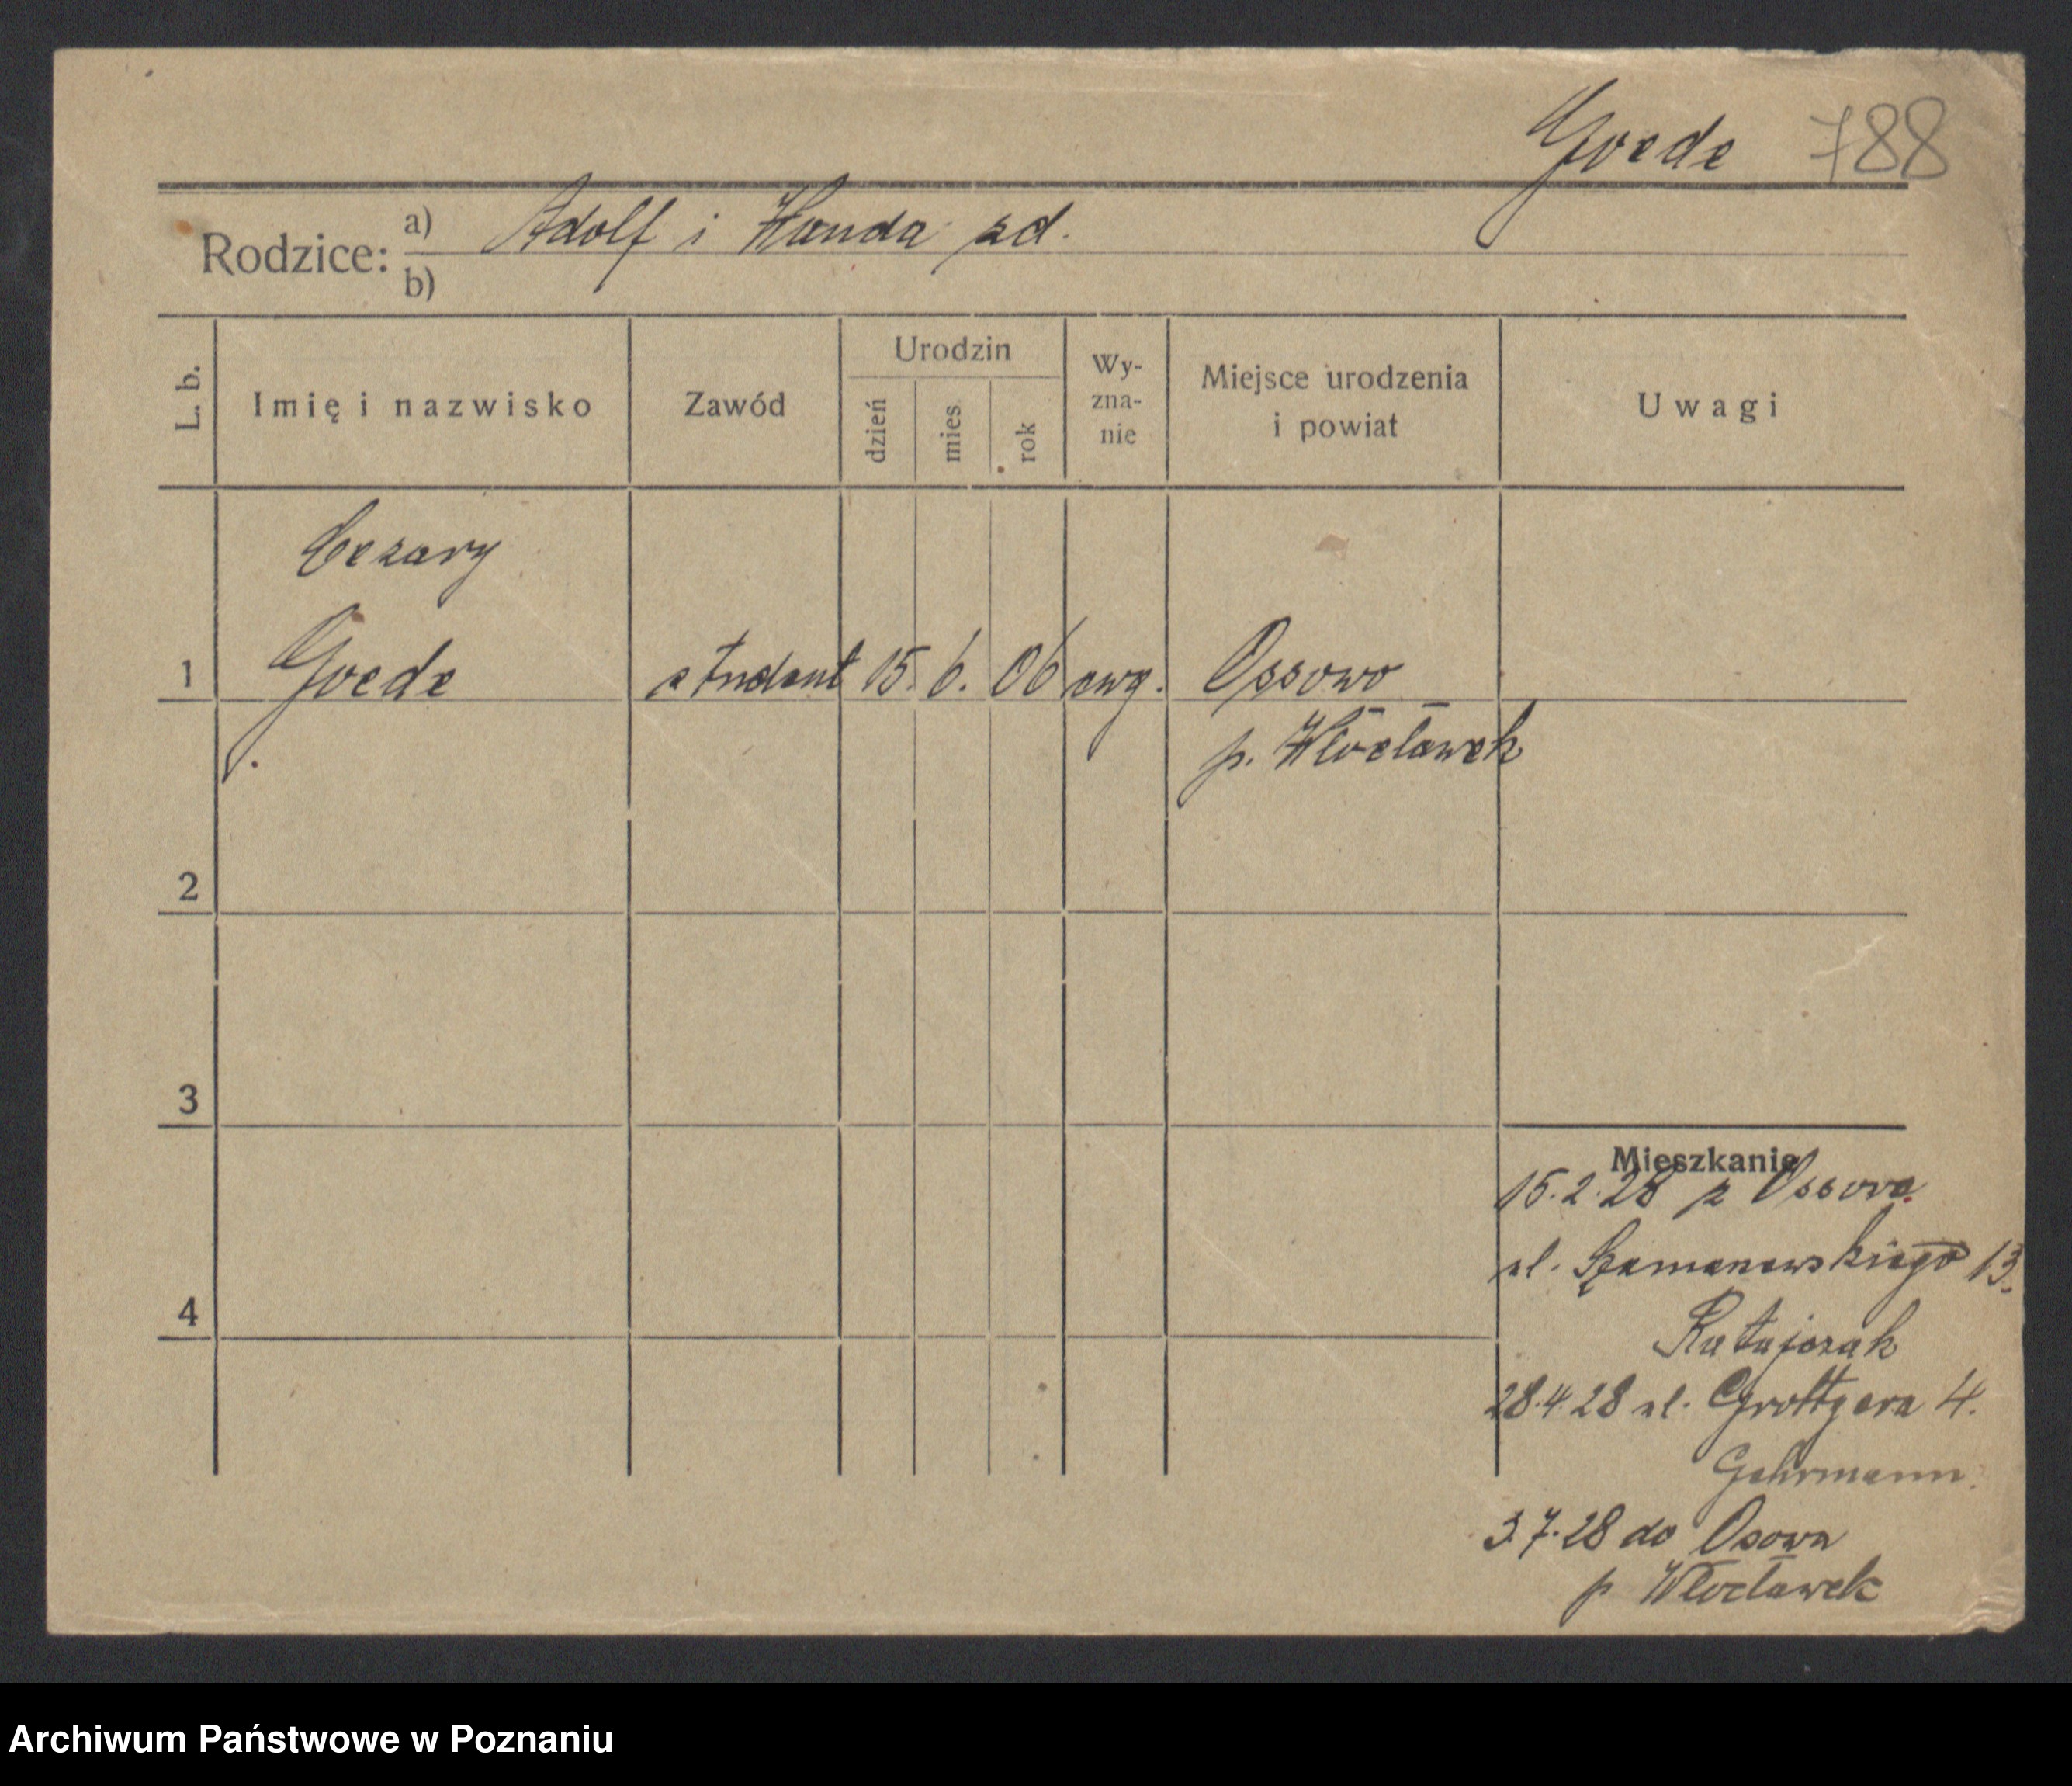 Goede 788
Rodzice: a) Adolf i Wanda zd.
b)
L. b.
Imię i nazwisko
Zawód
Urodzin
dzień
mies.
rok
Wy-
zna-
nie
Miejsce urodzenia
i powiat
Uwagi
Cezary
1 Goede student 15. 6. 06 ewg. Ossowo
p. Włocławek
2
3
4
Mieszkanie
15.2.28 z Ossowa
ul. 13.
Ratajczak
28.4.28 ul. Grottgera 4.
Gehrmann.
3.7.28 do Osowa
p Włocławek
Archiwum Państwowe w Poznaniu